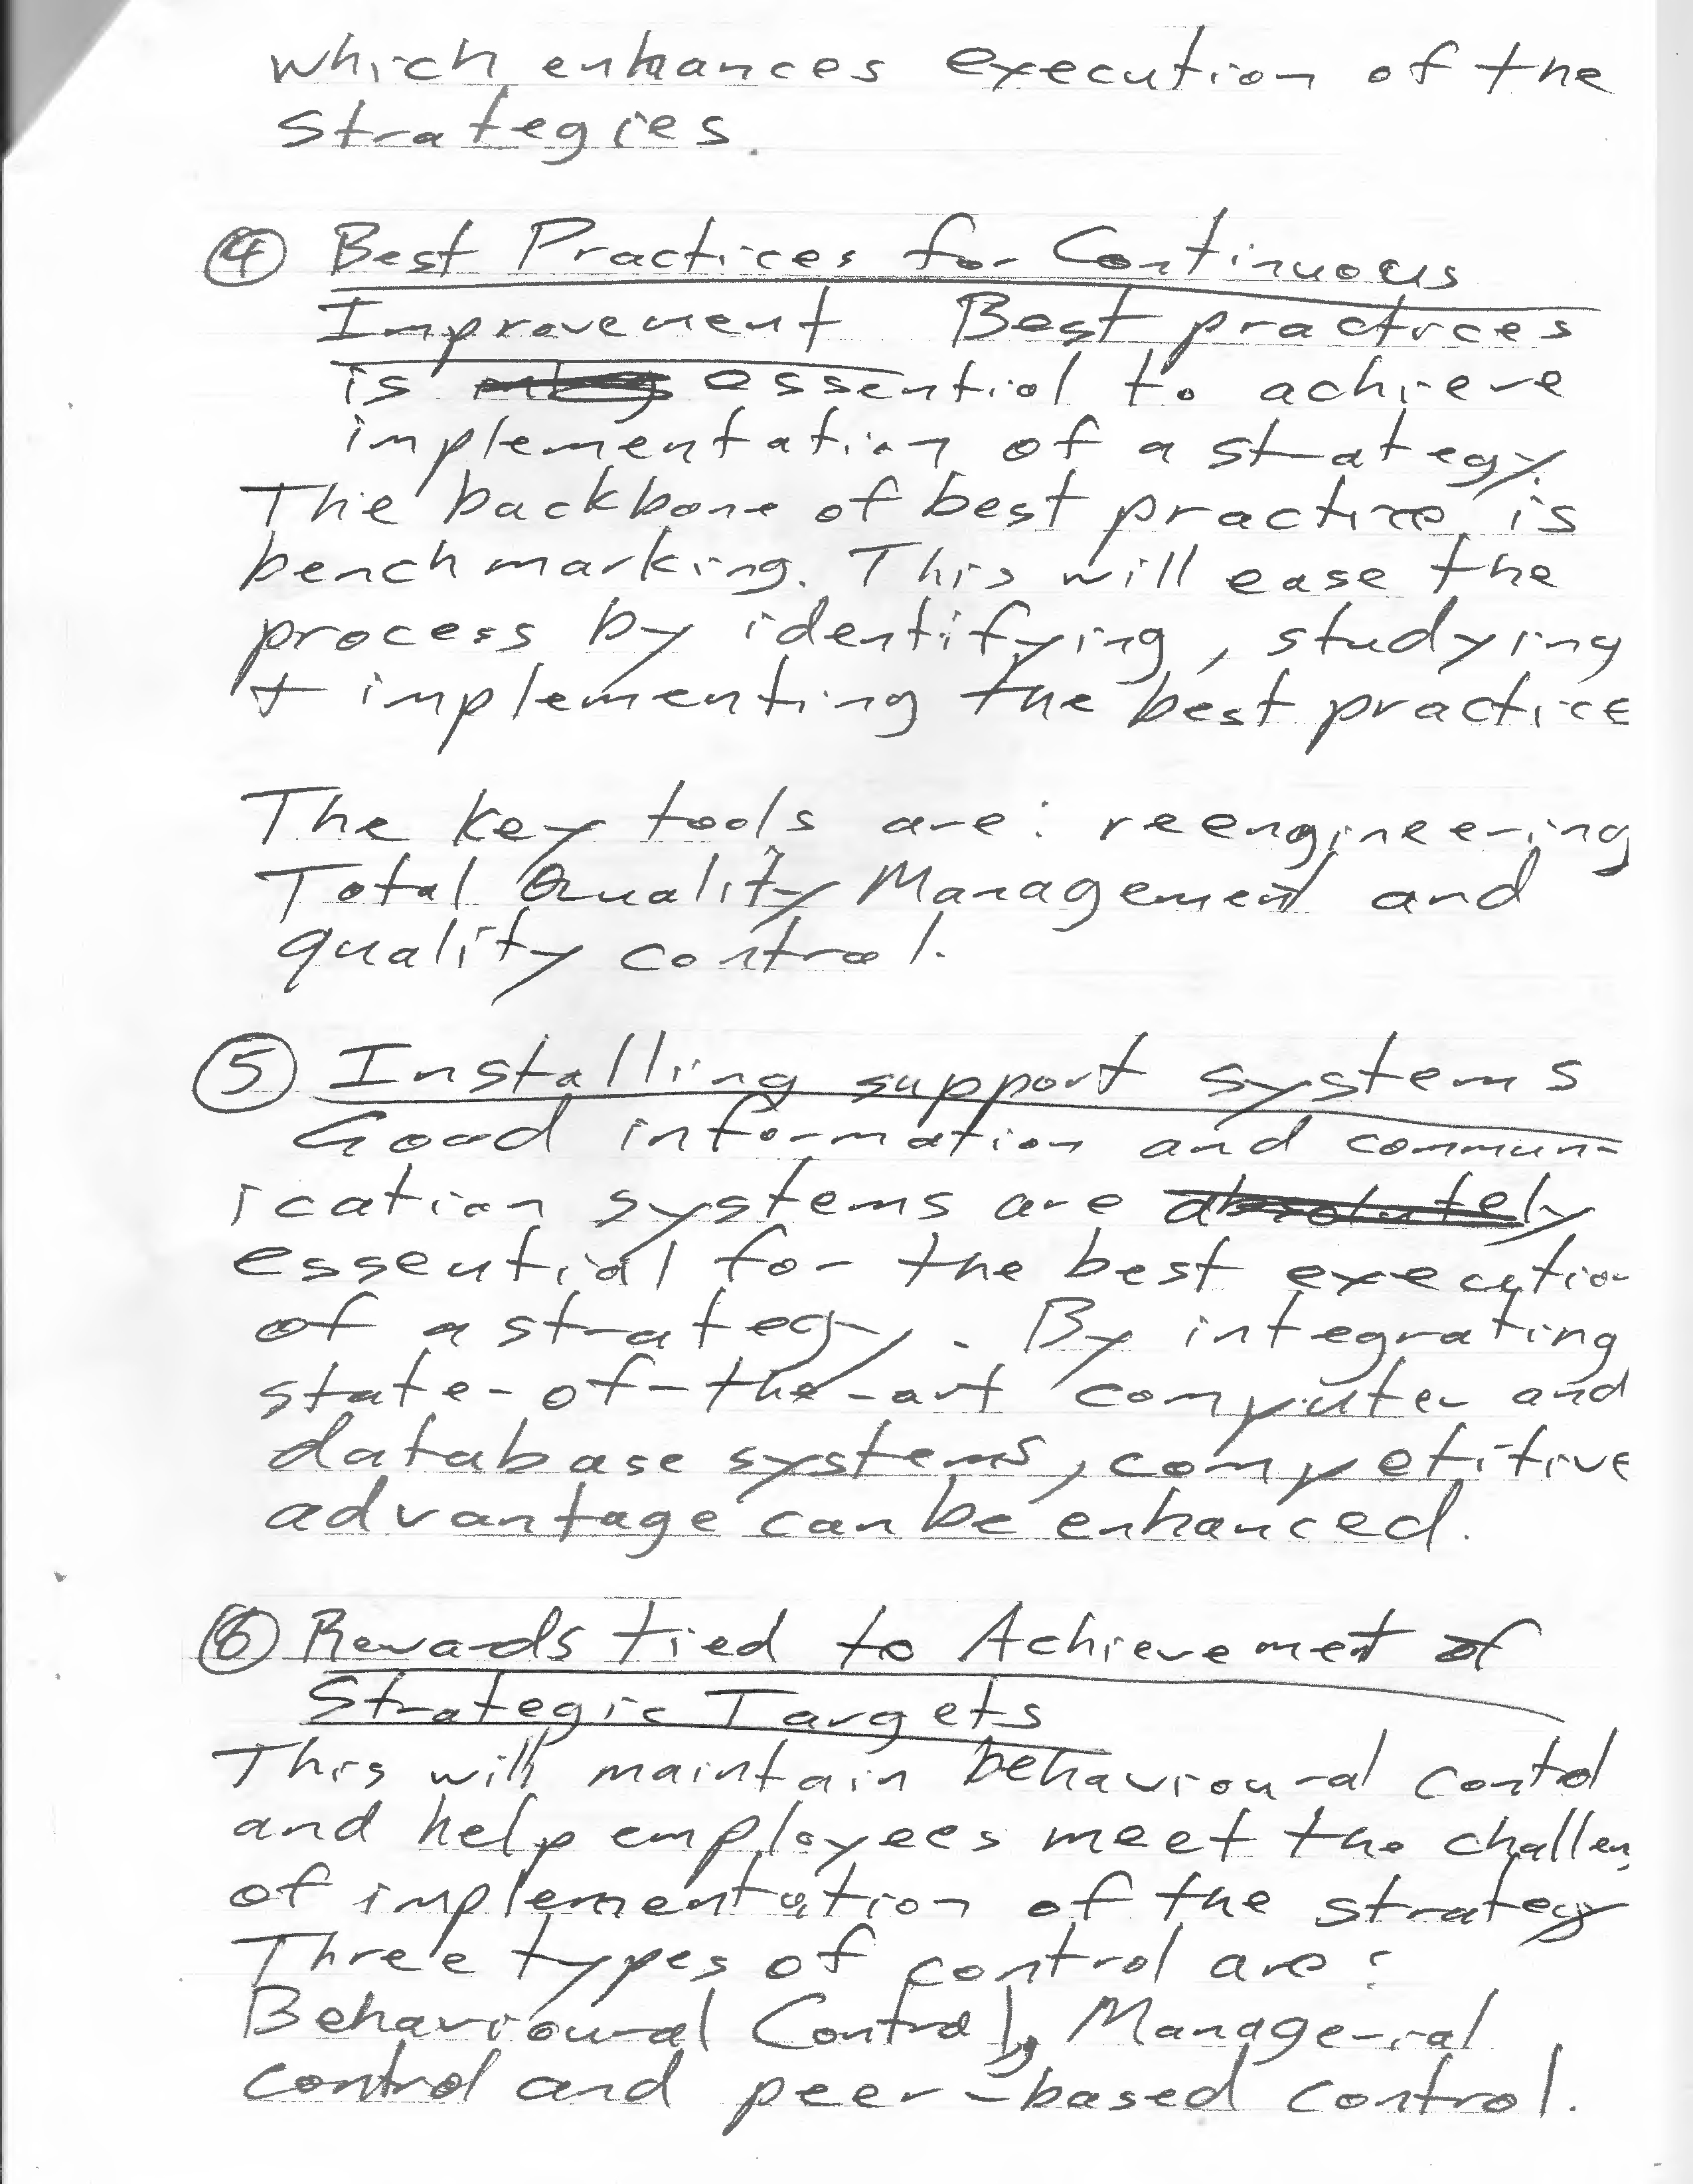 which enhances execution of the
strategies.
④ Best Practices for Continuous
Improvement Best practices
is essential to achieve
implementation of a strategy.
The backbone of best practice is
benchmarking. This will ease the
process by identifying, studying
+ implementing the best practice
The key tools are: reengineering
Total Quality Management and
quality control.
⑤ Installing support systems
Good information and commun-
ication systems are absolutely
essential for the best execution
of a strategy. By integrating
state-of-the-art computer and
database systems, competitive
advantage can be enhanced.
⑥ Rewards tied to Achievement of
Strategic Targets
This will maintain behavioural control
and help employees meet the challen
of implementation of the strategy
Three types of control are:
Behavioural Control, Managerial
control and peer-based control.